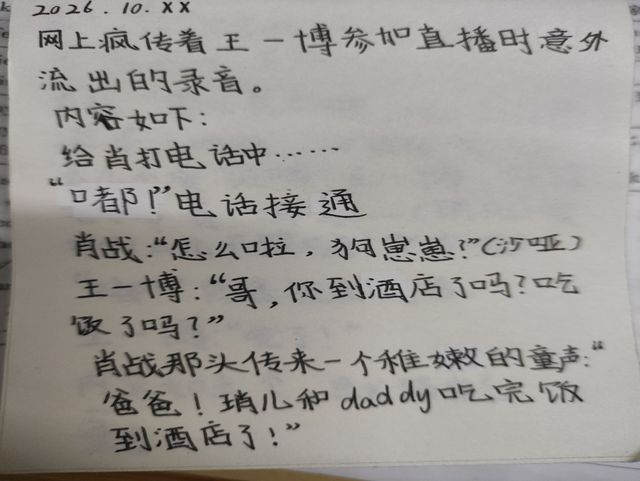 2026.10.XX
网上疯传着王一博参加直播时意外
流出的录音。
内容如下:
给肖打电话中……
“嘟!”电话接通
肖战:“怎么啦,狗崽崽?”(沙哑)
王一博:“哥,你到酒店了吗?吃
饭了吗?”
肖战那头传来一个稚嫩的童声:“
爸爸!琑儿和daddy吃完饭
到酒店了!”